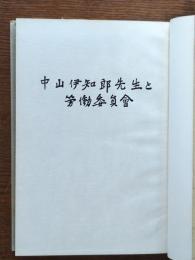 中山伊知郎先生と
労働委員會